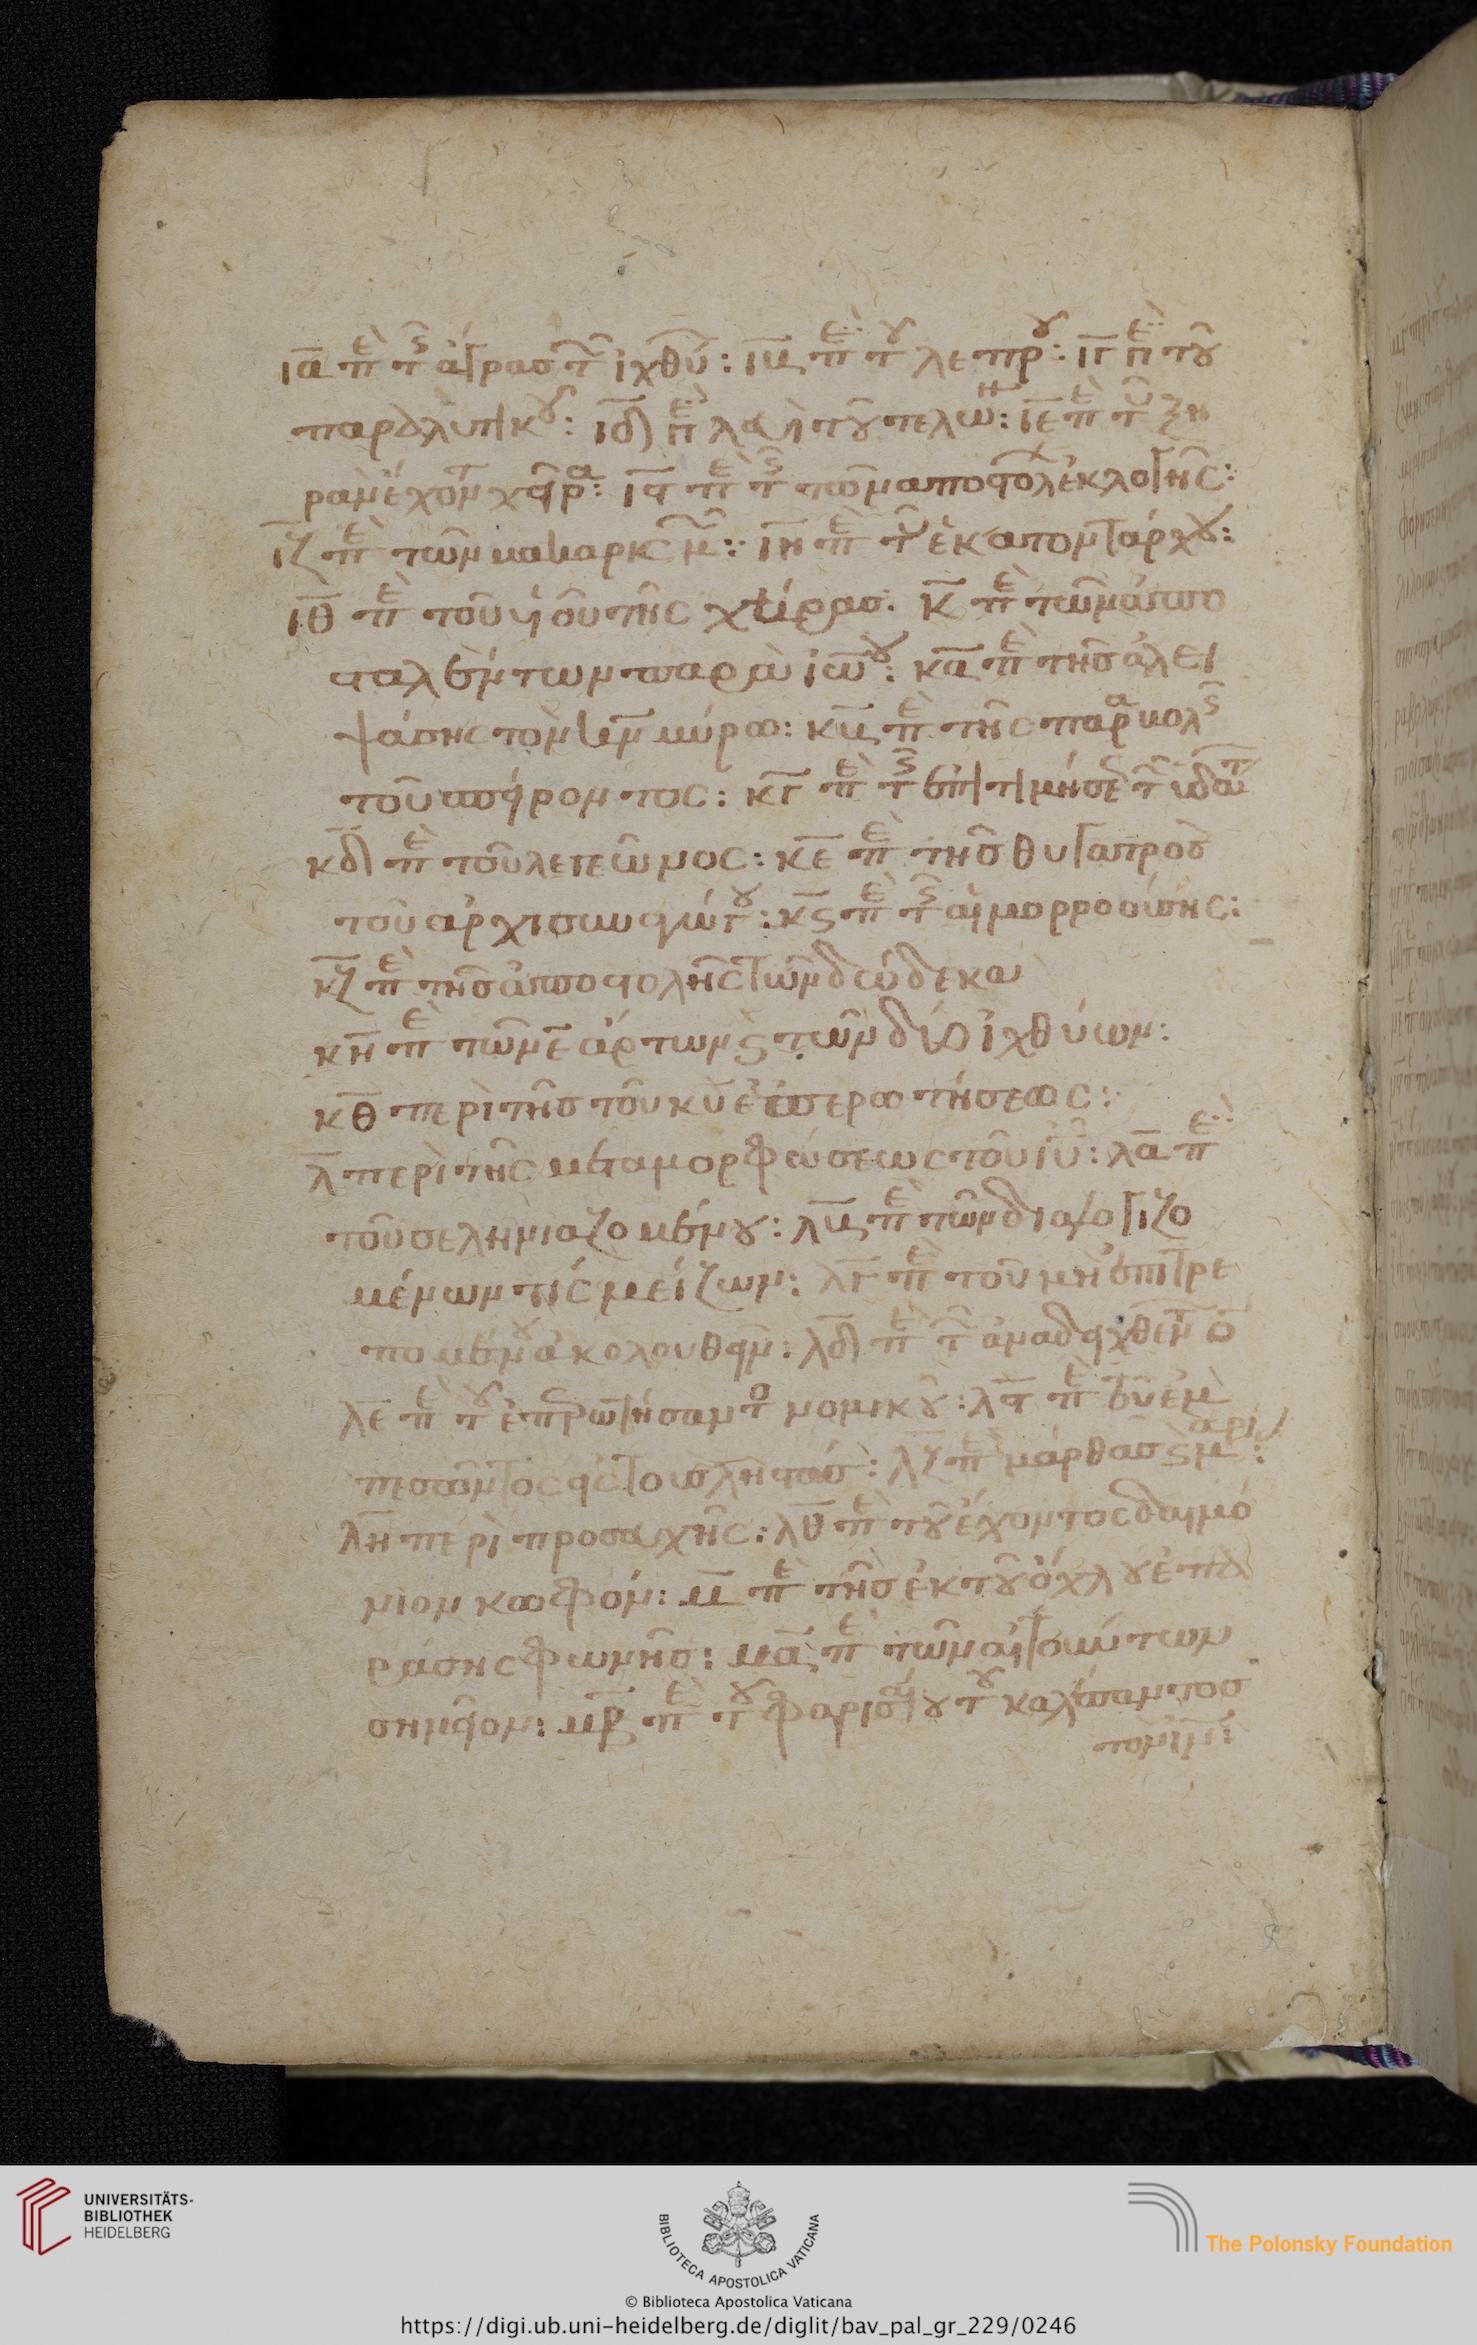 ια περὶ τῆς ἄγρας τῶν ἰχθύων: ιβ περὶ τοῦ λεπροῦ: ιγ περὶ τοῦ
παραλυτικοῦ: ιδ περὶ λευὶ τοῦ τελώνου: ιε περὶ τοῦ ξη
ρὰν ἔχοντος χεῖρα: ις περὶ τῆς τῶν ἀποστόλων ἐκλογῆς:
ιζ περὶ τῶν μακαρισμῶν: ιη περὶ τοῦ ἑκατοντάρχου:
ιθ περὶ τοῦ υἱοῦ τῆς χήρας. κ περὶ τῶν ἀπο
σταλέντων παρὰ ἰωάννου: κα περὶ τῆς ἀλει
ψάσης τὸν κν μύρω: κβ περὶ τῆς παραβολῆς
τοῦ σπείροντος: κγ περὶ τῆς ἐπιτιμήσεως τῶν ὑδάτων
κδ περὶ τοῦ λεγεῶνος: κε περὶ τῆς θυγατρὸς
τοῦ ἀρχισυναγώγου: κς περὶ τῆς αἱμορροούσης:
κζ περὶ τῆς ἀποστολῆς τῶν δώδεκα
κη περὶ τῶν ε ἄρτων ς τῶν δύο ἰχθύων:
κθ περὶ τῆς τοῦ κυ ἐπερωτήσεως:
λ περὶ τῆς μεταμορφώσεως τοῦ ιυ: λα περὶ
τοῦ σεληνιαζομένου: λβ περὶ τῶν διαλογιζο
μένων τίς μείζων: λγ περὶ τοῦ μὴ ἐπιτρε
πομένου ἀκολουθεῖν: λδ περὶ τῶν ἀναδειχθέντων ο
λε περὶ τοῦ ἐπερωτήσαντος νομικοῦ: λς περὶ τοῦ ἐμ
πεσόντος εἰς τοὺς ληστάς: λζ περὶ μάρθας ς μαρίας:
λη περὶ προσευχῆς: λθ περὶ τοῦ ἔχοντος δαιμό
νιον κωφόν: μ περὶ τῆς ἐκ τοῦ ὄχλου ἐπα
ράσης φωνῆς: μα περὶ τῶν αἰτούντων
σημεῖον: μβ περὶ τοῦ φαρισαίου τοῦ καλέσαντος
τὸν ιν:
UNIVERSITÄTS-
BIBLIOTHEK
HEIDELBERG
BIBLIOTECA APOSTOLICA VATICANA
The Polonsky Foundation
© Biblioteca Apostolica Vaticana
https://digi.ub.uni-heidelberg.de/diglit/bav_pal_gr_229/0246